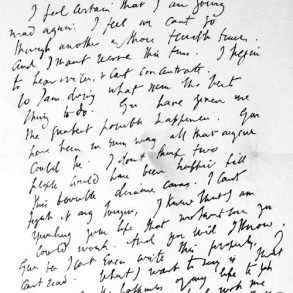 I feel certain that I am going
mad again: I feel we cant go
through another of those terrible times.
And I shant recover this time. I begin
to hear voices, & cant concentrate.
So I am doing what seems the best
thing to do. You have given me
the greatest possible happiness. You
have been in every way all that anyone
could be. I dont think two
people could have been happier till
this terrible disease came. I cant
fight it any longer, I know that I am
spoiling your life, that without me you
could work. And you will I know.
You see I cant even write this properly. I
cant read. What I want to say is that
the happiness of my life to you